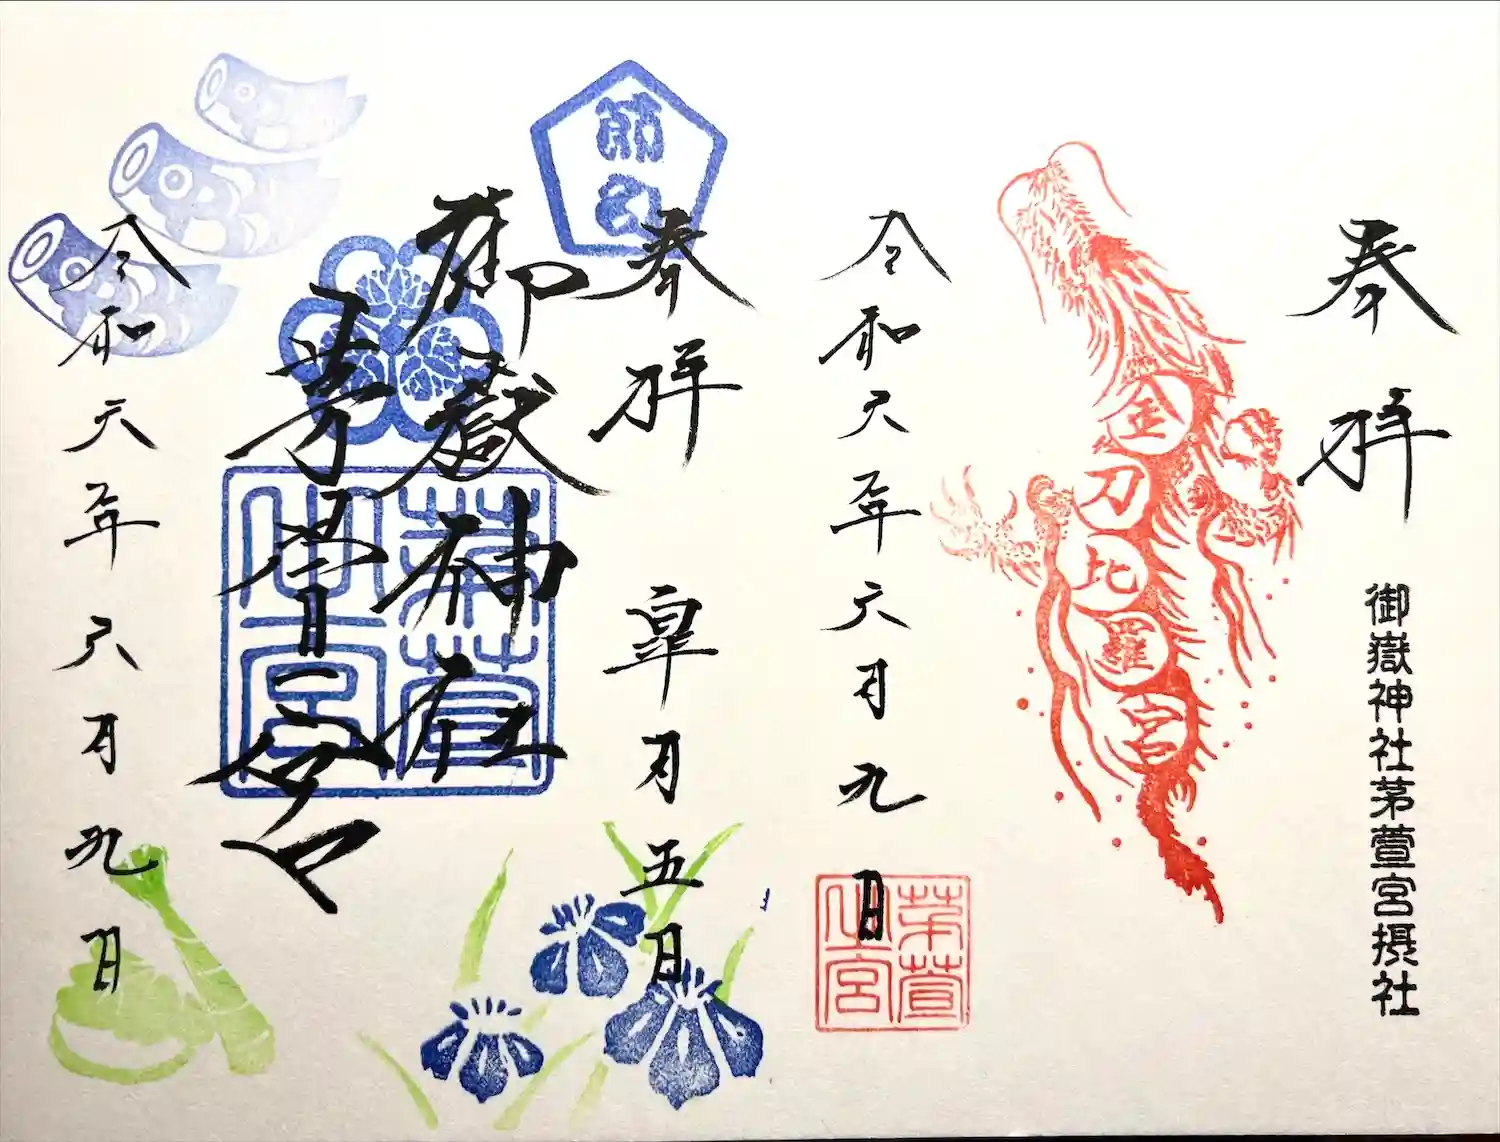 奉拝
御嶽神社茅萱宮摂社
金刀比羅宮
令和六年六月九日
茅萱
之宮
節句
奉拝
皐月五日
御嶽神社
茅萱宮
茅萱
之宮
令和六年六月九日